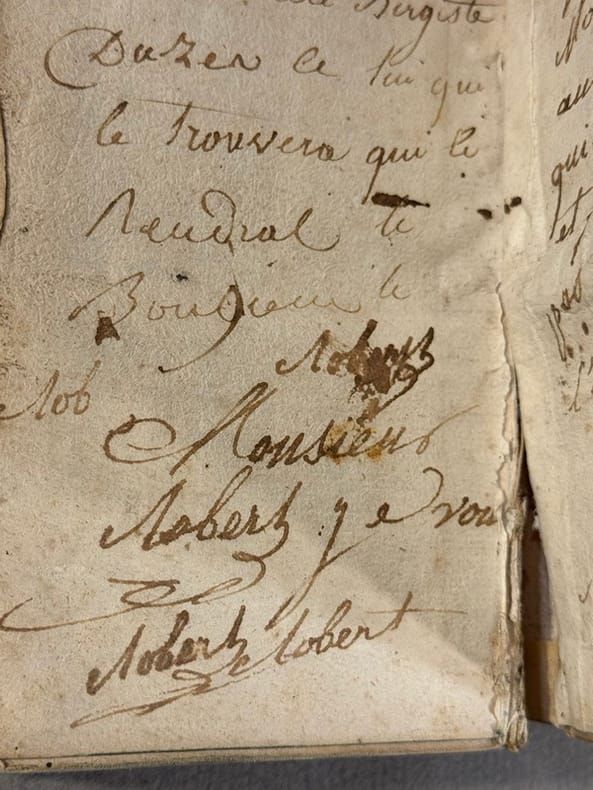 Birgiste
Duzer ce lui qui
le trouvera qui le
Rendral le
Bondieu le
Robert
Rob
Monsieur
Robert je vou
Robert Robert
au
qui
et